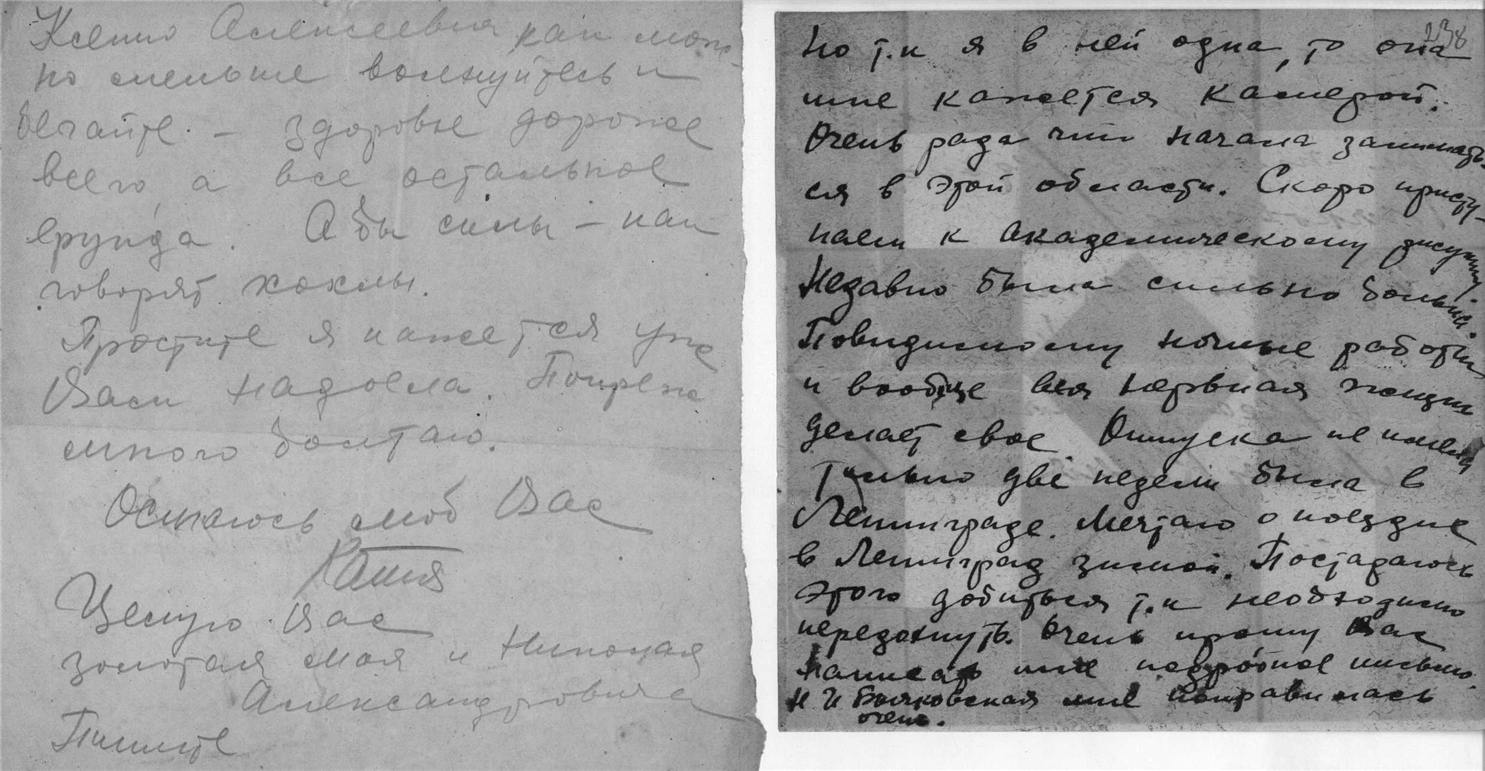 Ксения Алексеевна как мож-
но меньше волнуйтесь и
бегайте – здоровье дороже
всего, а все остальное
ерунда. Абы силы – как
говорят хохлы.
Простите я кажется уже
Вам надоела. По
много болтаю.
Остаюсь люб Вас
Катя
Целую Вас
золотая моя и Николая
Александровича
Пишите
238
Но т.к я в ней одна, то она
мне кажется камерой.
Очень рада что начала занимать-
ся в этой области. Скоро присту-
паем к академическому рисунку
Недавно была сильно больна.
Повидимому ночные работы
и вообще вся нервная жизнь
делает свое Отпуска не имела
только две недели была в
Ленинграде. Мечтаю о поездке
в Ленинград зимой. Постараюсь
этого добиться т.к необходимо
передохнуть. Очень прошу Вас
написать мне подробное письмо.
Н И Бычковская мне понравилась
очень.